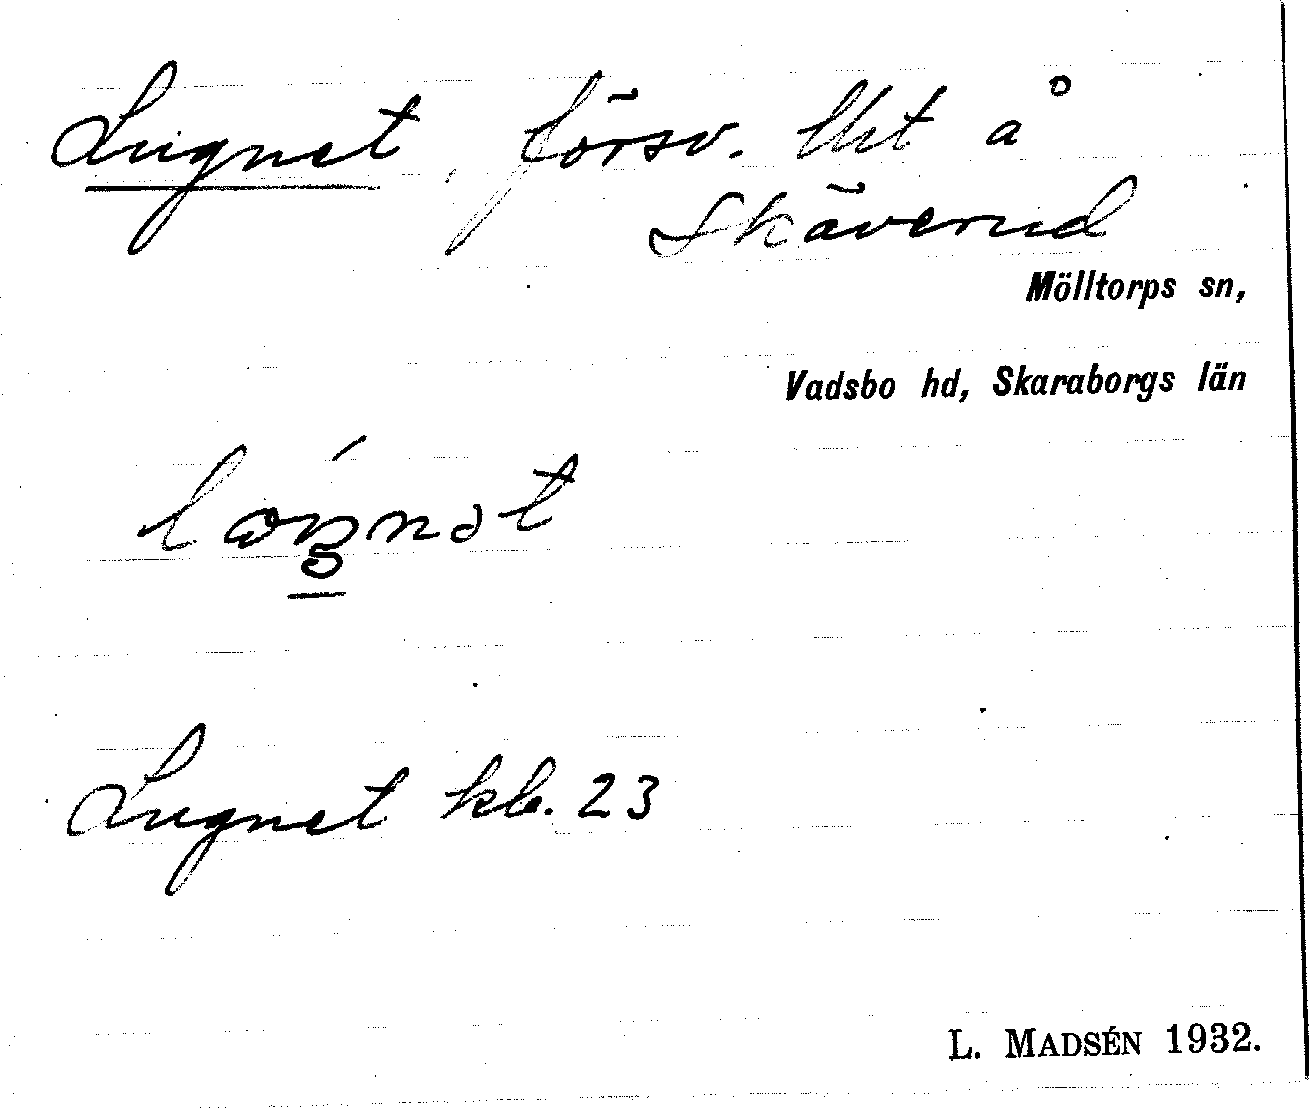 Lugnet, försv. lht å
Skäverud
Mölltorps sn,
Vadsbo hd, Skaraborgs län
Lugnet kb. 23
L. MADSÉN 1932.